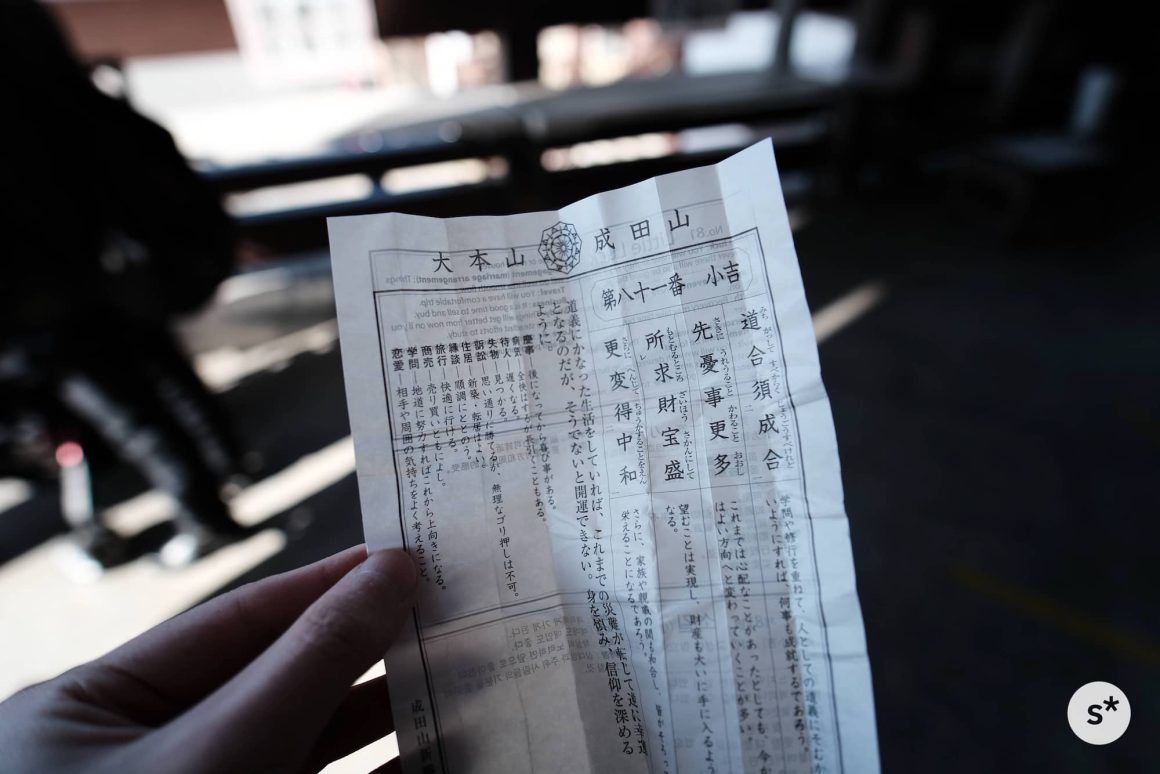 大本山 成田山
第八十一番 小吉
道合須成合
先憂事更多
所求財宝盛
更変得中和
学問や修行を重ねて、人としての道義にそむか
いようにすれば、何事も成就するであろう。
これまでは心配なことがあったとしても、今
はよい方向へと変わっていくことが多い。
望むことは実現し、財産も大いに手に入るよう
なる。
さらに、家族や親戚の間も和合し、皆がそろって
栄えることになるであろう。
道義にかなった生活をしていれば、これまでの災難が転じて逆に幸運
となるのだが、そうでないと開運できない。身を慎み、信仰を深める
ように。
慶事―後になってから喜び事がある。
病気―全快はするが長引くこともある。
待人―遅くなる。
失物―見つかる。
訴訟―思い通りに勝てるが、無理なゴリ押しは不可。
住居―新築・転居はよい。
縁談―順調にととのう。
旅行―快適に行ける。
商売―売り買いともによし。
学問―地道に努力すればこれから上向きになる。
恋愛―相手や周囲の気持ちをよく考えること。
成田山新
s*